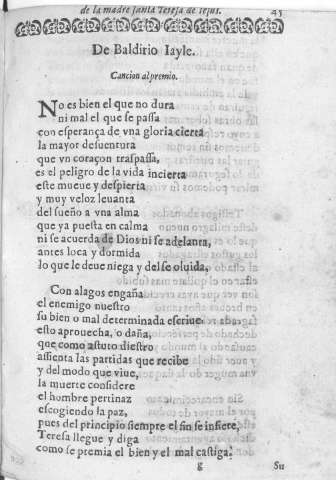 de la madre santa Teresa de Iesus. 45
De Balditio Iayle.
Cancion al premio.
No es bien el que no dura
ni mal el que se passa
con esperança de vna gloria cierta
la mayor desuentura
que vn coraçon traspassa,
es el peligro de la vida incierta
este mueue y despierta
y muy veloz leuanta
del sueño a vna alma
que ya puesta en calma
ni se acuerda de Dios ni se adelanta,
antes loca y dormida
lo que le deue niega y del se oluida,
Con alagos engaña
el enemigo nuestro
su bien o mal determinada escriue
esto aprouecha, o daña,
que como astuto diestro
assienta las partidas que recibe
y del modo que viue,
la muerte considere
el hombre pertinaz
escogiendo la paz,
pues del principio siempre el fin se infiere,
Teresa llegue y diga
como se premia el bien y el mal castiga.
g Su